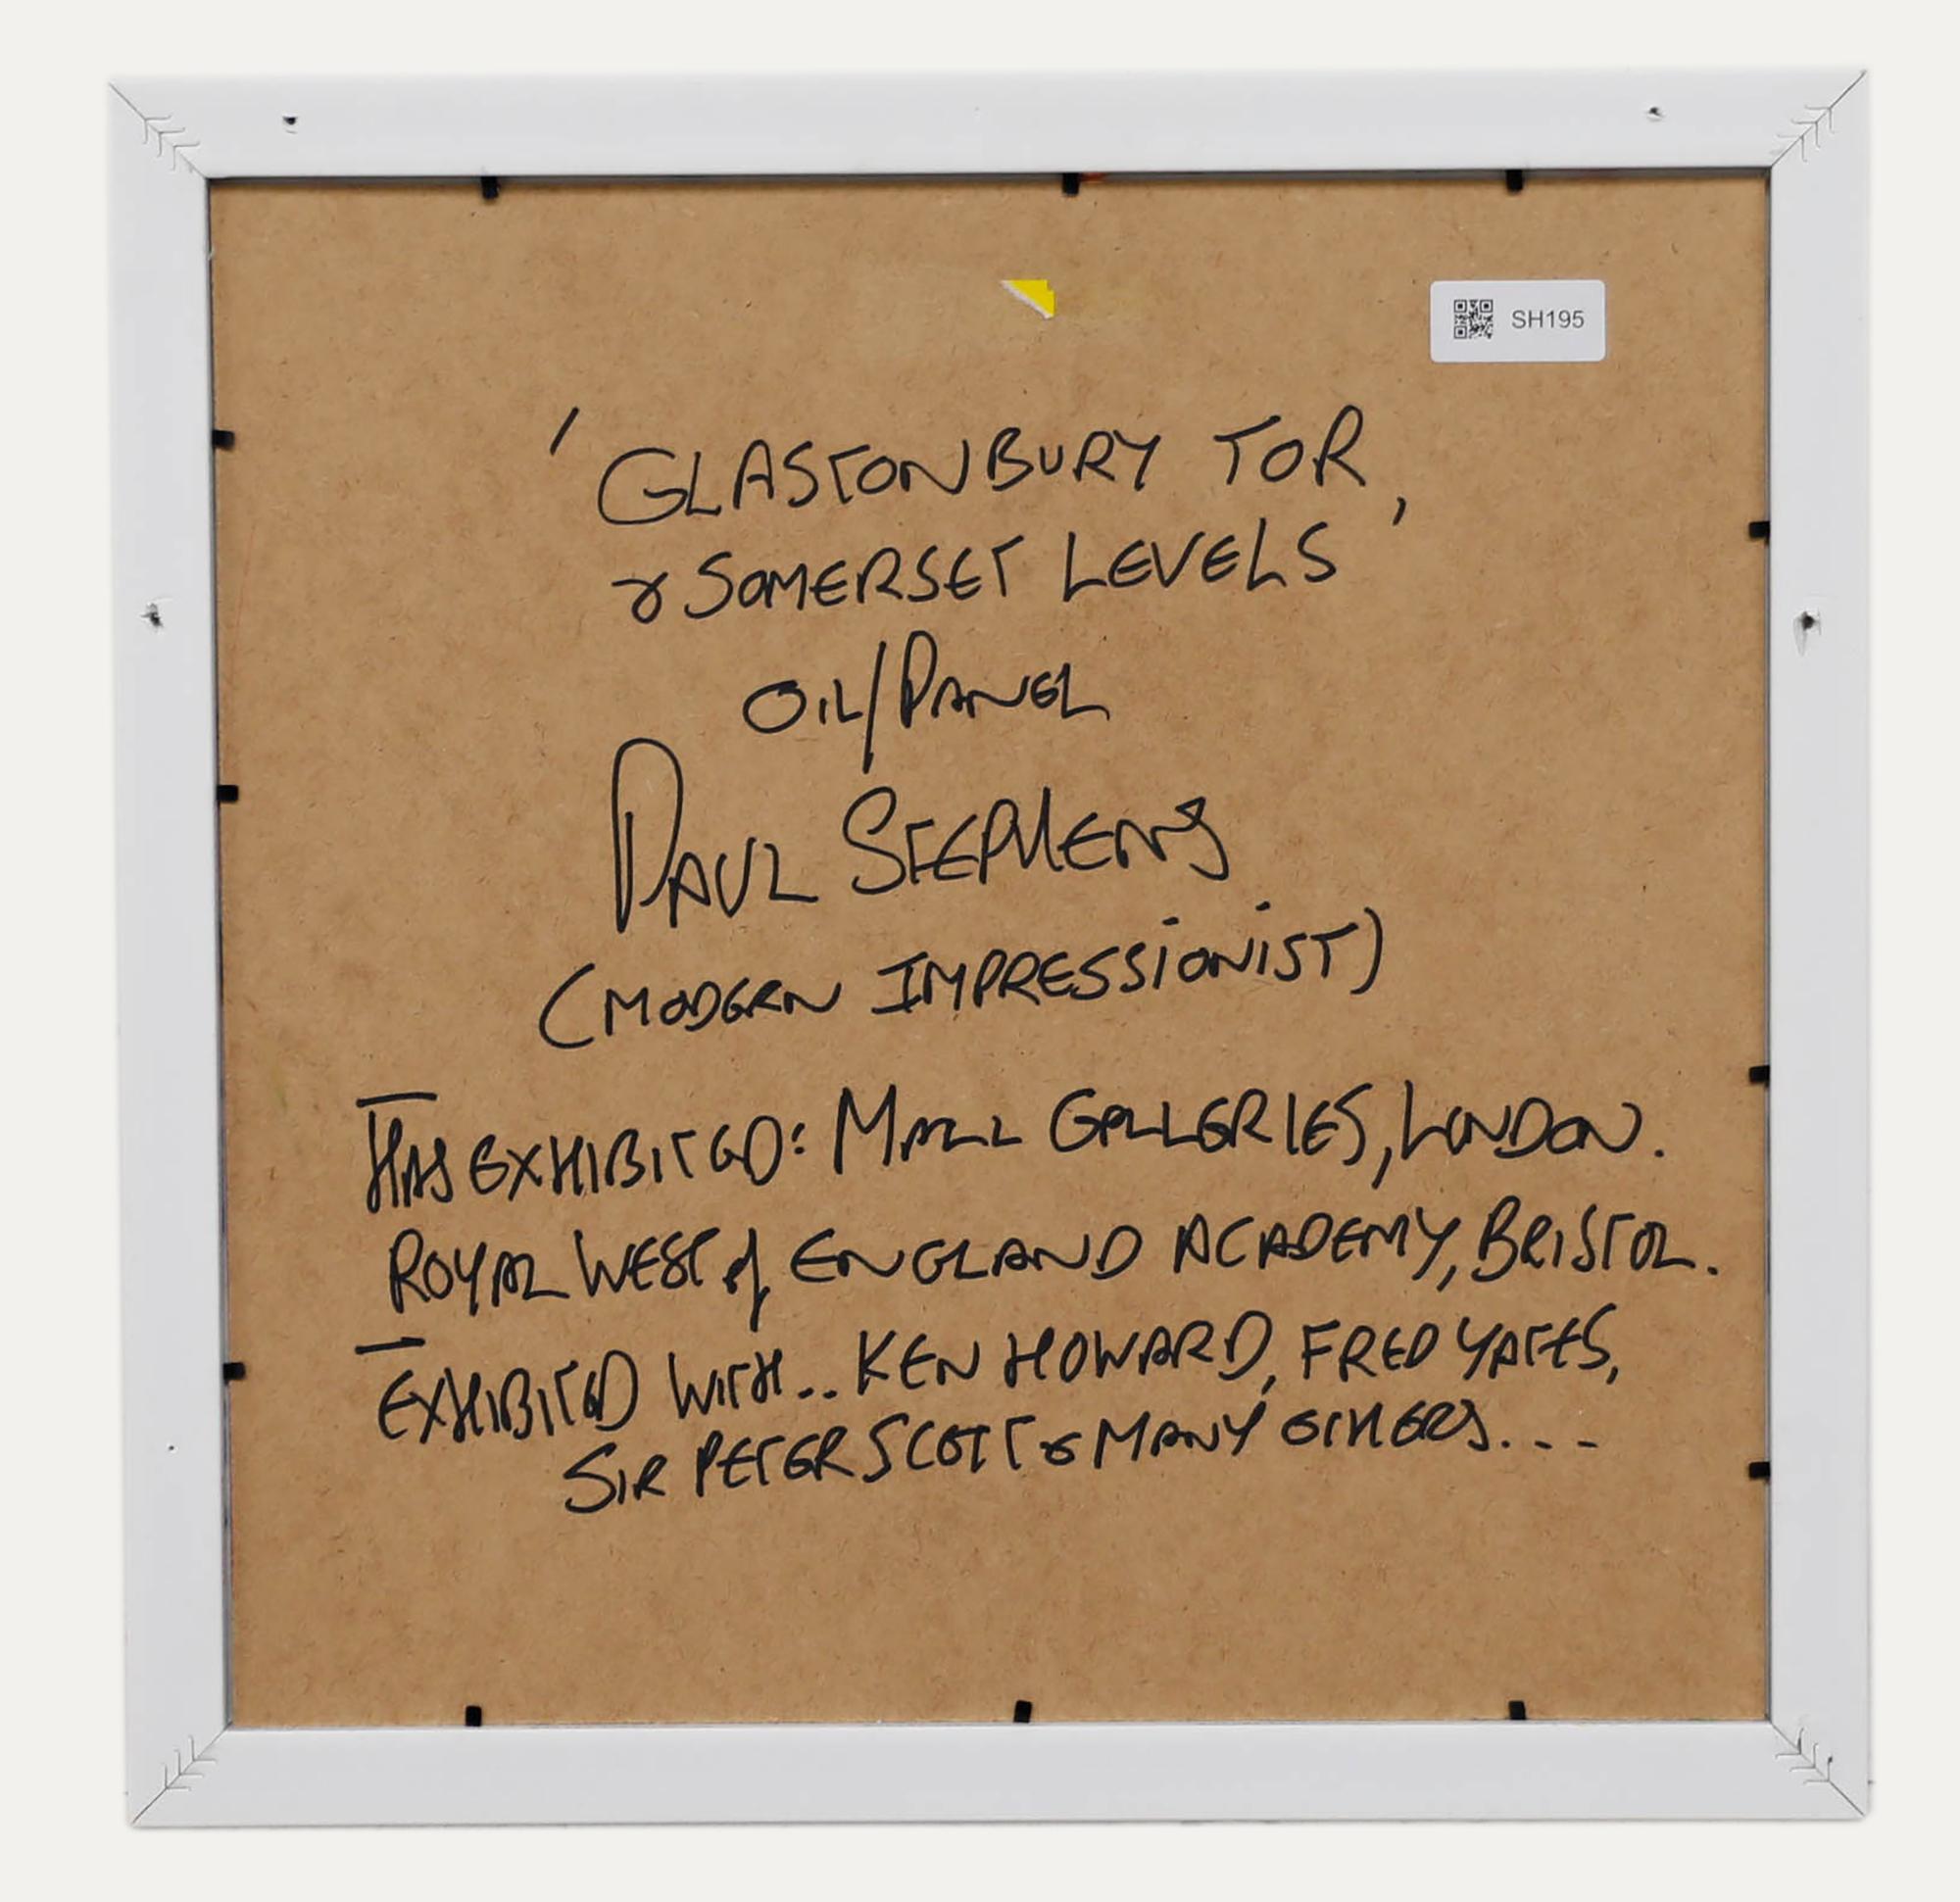 SH195
'GLASTONBURY TOR,
& SOMERSET LEVELS'
OIL/PANEL
PAUL STEPHENS
(MODERN IMPRESSIONIST)
HAS EXHIBITED: MALL GALLERIES, LONDON.
ROYAL WEST of ENGLAND ACADEMY, BRISTOL.
EXHIBITED WITH.. KEN HOWARD, FRED YATES,
SIR PETER SCOTT & MANY OTHERS....